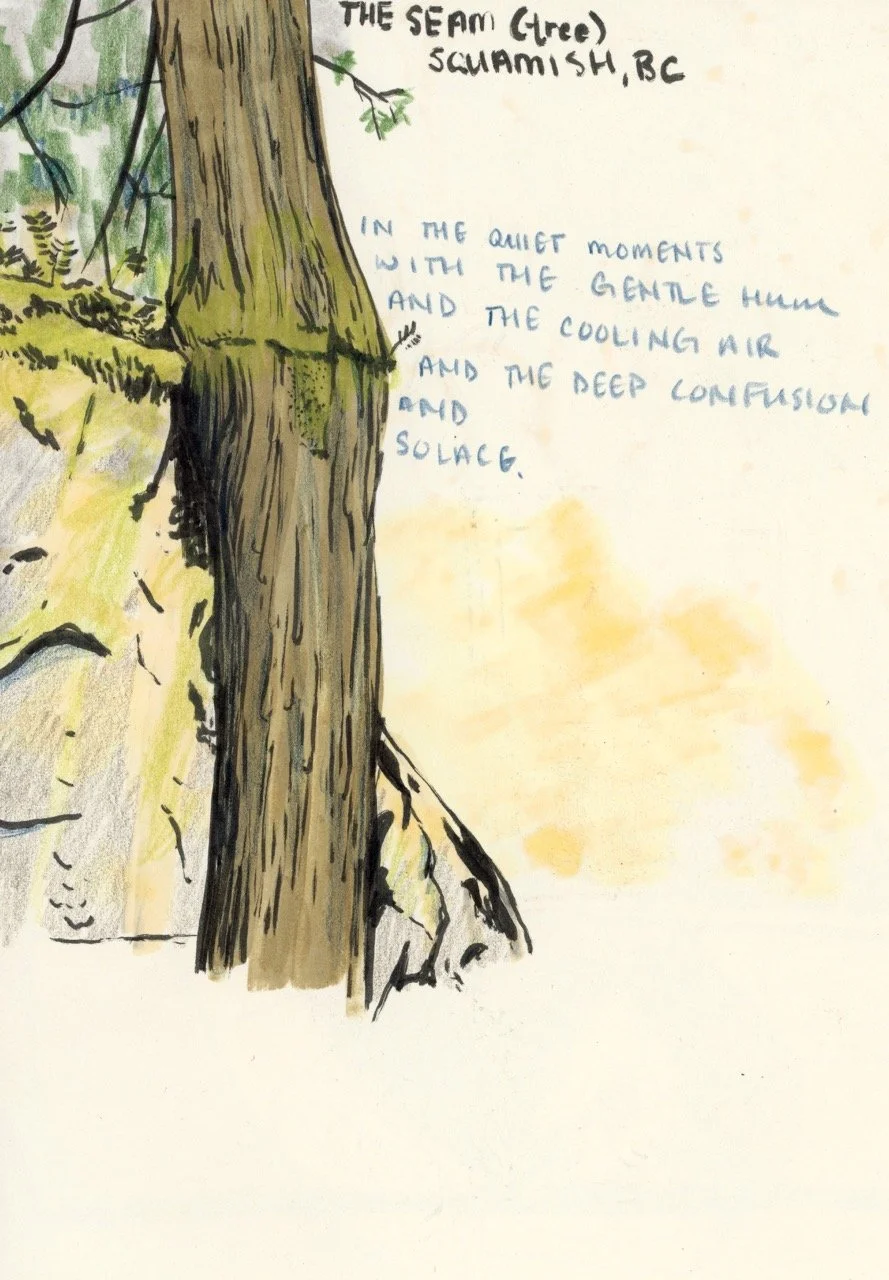 THE SEAM (tree)
SQUAMISH, BC
IN THE QUIET MOMENTS
WITH THE GENTLE HUM
AND THE COOLING AIR
AND THE DEEP CONFUSION
AND
SOLACE.